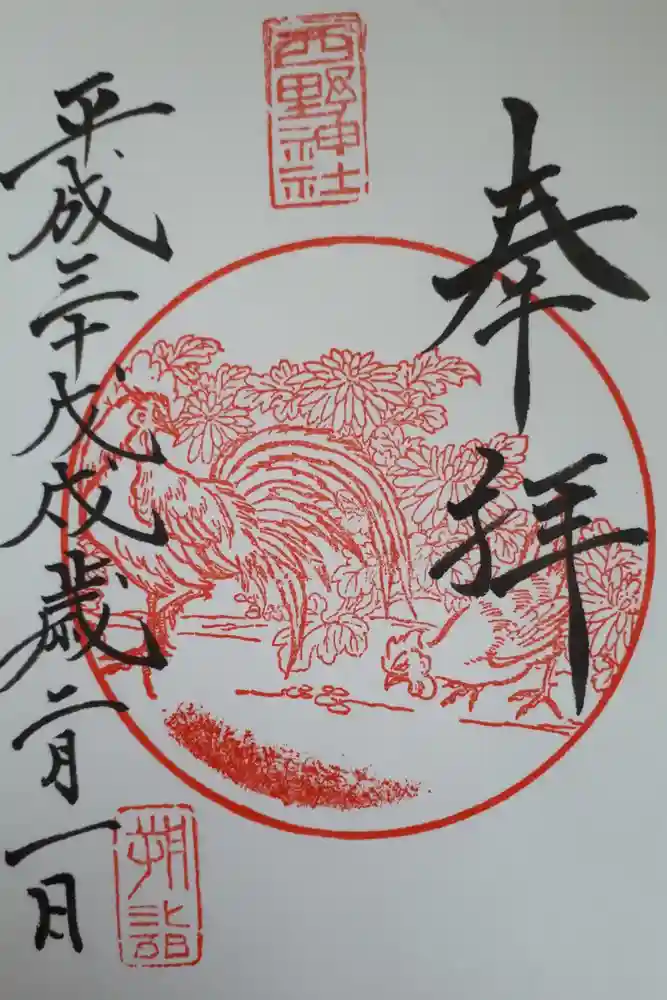 奉拝
西野神社
平成三十戊戌歳二月一日
朔詣